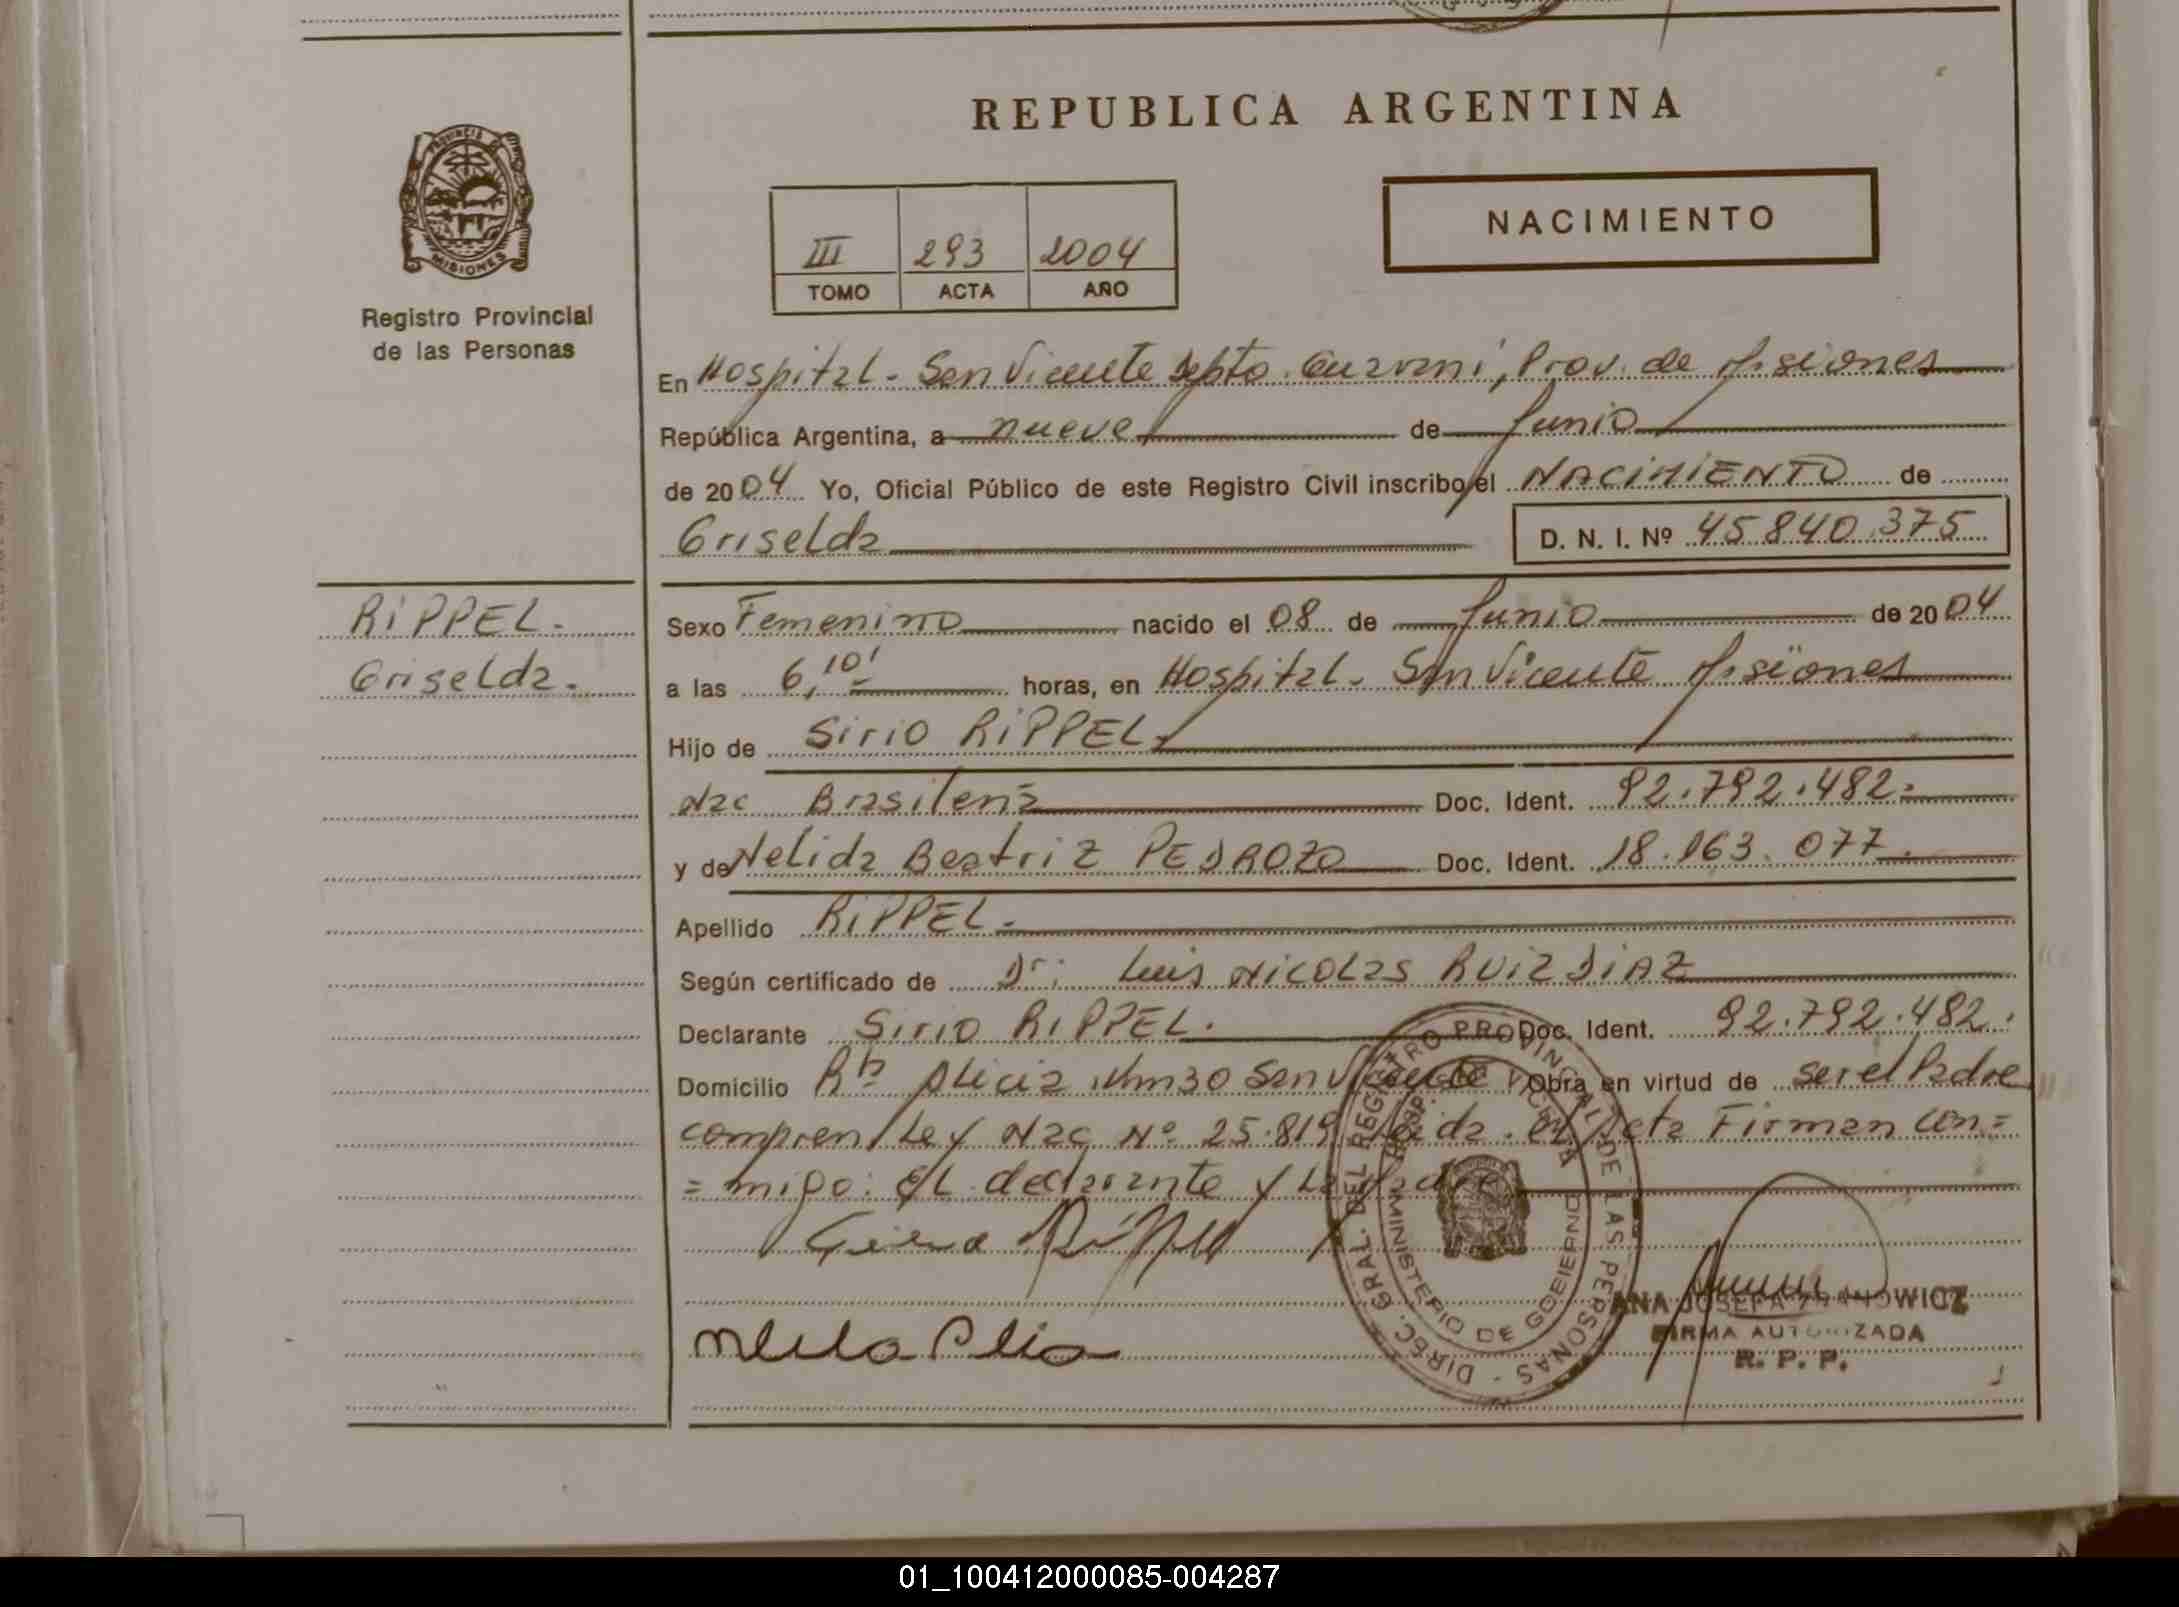 REPUBLICA ARGENTINA
PROVINCIA DE
MISIONES
Registro Provincial
de las Personas
NACIMIENTO
III 293 2004
TOMO ACTA AÑO
En Hospital - San Vicente Depto. Guarani, Prov. de Misiones
República Argentina, a nueve de Junio
de 2004 Yo, Oficial Público de este Registro Civil inscribo el NACIMIENTO de
Griselda D. N. I. Nº 45.840.375
RIPPEL.
Griselda.
Sexo Femenino nacido el 08 de Junio de 2004
a las 6,10' horas, en Hospital - San Vicente Misiones
Hijo de Sirio RIPPEL
Nac Brasilena Doc. Ident. 92.792.482.
y de Nelida Beatriz PEDROZO Doc. Ident. 18.163.077.
Apellido RIPPEL.
Según certificado de Dr: Luis NICOLAS RUIZ DIAZ
Declarante Sirio RIPPEL. Doc. Ident. 92.792.482.
Domicilio Alicia Km 30 San Vicente Obra en virtud de ser el Padre
compren Ley Nac Nº 25.819 Leida el Acta Firman con=
=migo: el declarante y La Madre
DIREC. GRAL. DEL REGISTRO PROVINCIAL DE LAS PERSONAS -
MINISTERIO DE GOBIERNO
ANA JOSEFA
FIRMA AUTORIZADA
R. P. P.
01_100412000085-004287